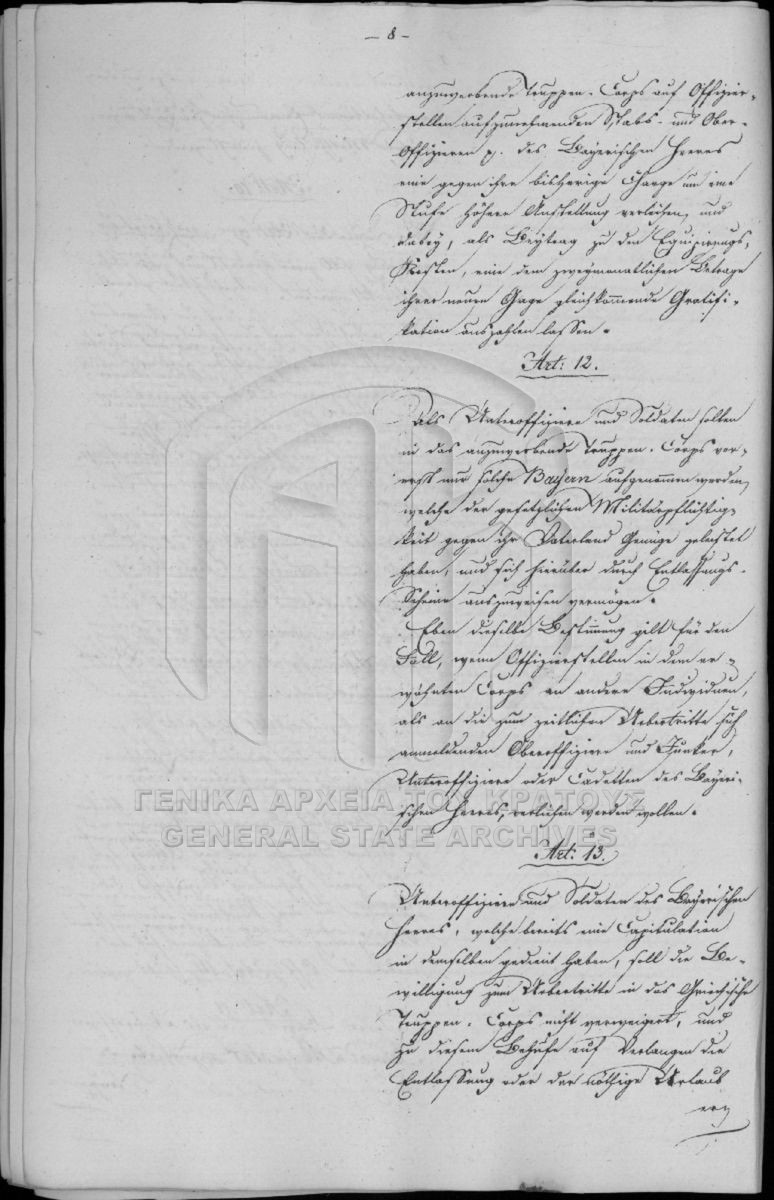 - 8 -
anzuwerbende Truppen-Corps auf Offizier-
stellen aufzunehmenden Stabs- und Ober-
Offizieren p. des Bayerischen Heeres
eine gegen ihre bisherige Charge um eine
Stufe höhere Anstellung verleihen, und
dabey, als Beytrag zu den Equipirungs-
Kosten, eine dem zweymonatlichen Betrage
ihrer neuen Gage gleichkommende Gratifi-
kation auszahlen lassen.
Art: 12.
Als Unteroffiziere und Soldaten sollen
in das anzuwerbende Truppen-Corps vor-
erst nur solche Bayern aufgenommen werden,
welche der gesetzlichen Militärpflichtig-
keit gegen ihr Vaterland Genüge geleistet
haben, und sich hierüber durch Entlassungs-
Scheine auszuweisen vermögen.
Eben dieselbe Bestimmung gilt für den
Fall, wenn Offizierstellen in dem er-
wähnten Corps an andere Individuen,
als an die zum zeitlichen Uebertritte sich
anmeldenden Oberoffiziere und Junker,
Unteroffiziere oder Cadetten des Bayeri-
schen Heeres, verliehen werden wollen.
ΓΕΝΙΚΑ ΑΡΧΕΙΑ ΤΟΥ ΚΡΑΤΟΥΣ
GENERAL STATE ARCHIVES
Art: 13.
Unteroffizieren und Soldaten des Bayerischen
Heeres, welche bereits eine Capitulation
in demselben gedient haben, soll die Be-
willigung zum Uebertritte in das Griechische
Truppen-Corps nicht verweigert, und
zu diesem Behufe auf Verlangen die
Entlassung oder der nöthige Urlaub